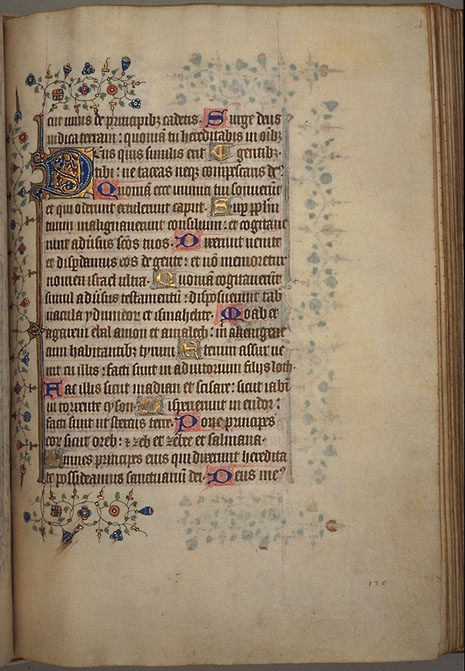 cut unus de principibꝫ cadetis. Surge deus
iudica terram: quoniā tu hereditabis in oībꝫ
Deus quis similis erit gentibꝫ.
tibi: ne taceas neqꝫ compescaris deꝰ
Quoniā ecce inimici tui sonuerūt
et qui oderunt extulerunt caput. Suꝑ pplm
tuum malignauerunt consilium: et cogitaue
runt adūsus scōs tuos. Dixerunt uenite
et disperdamus eos de gente: et nō memoretur
nomen israel ultra. Quoniam cogitauerūt
simul adūsus testamentū: disposuerunt tab
nacula ydumeor et ismahelite. Moab et
agareni ebal amon et amalech: alienigene
cum habitantibꝫ tyrum. Etenim assur ue
nit cū illis: facti sunt in adiutorium filijs loth.
Fac illis sicut madian et sisare: sicut iabi
in torrente cyson. Disperierunt in endor:
facti sunt ut stercus terre. Pone principes
eor sicut oreb: ꝛ zeb et zebee et salmana.
Omnes principes eius qui dixerunt heredita
te possideamus sanctuariū dei. Deus meꝰ
170